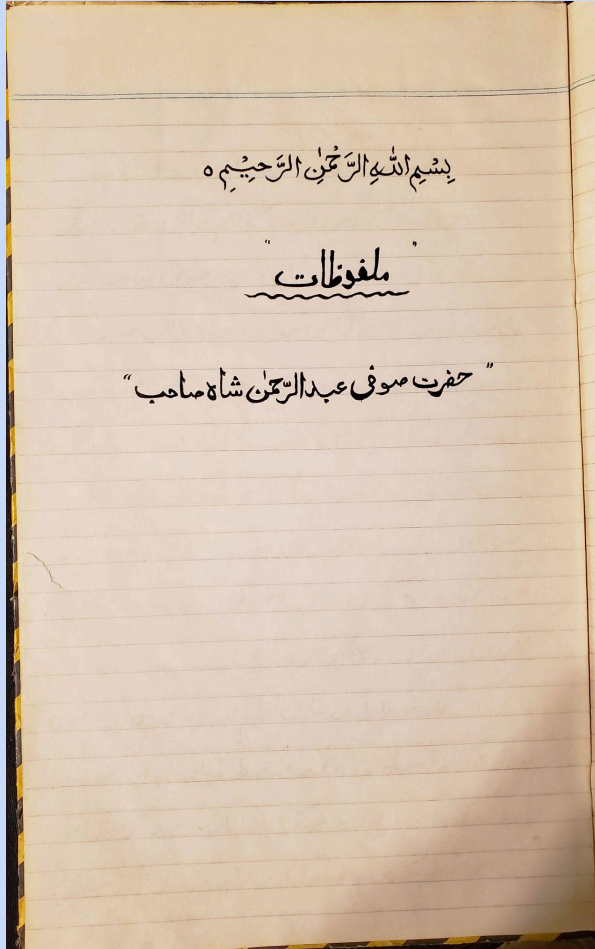 بِسْمِ اللّٰہِ الرَّحْمٰنِ الرَّحِیْمِ ہ
" ملفوظات "
" حضرت صوفی عبدالرّحمٰن شاہ صاحب "